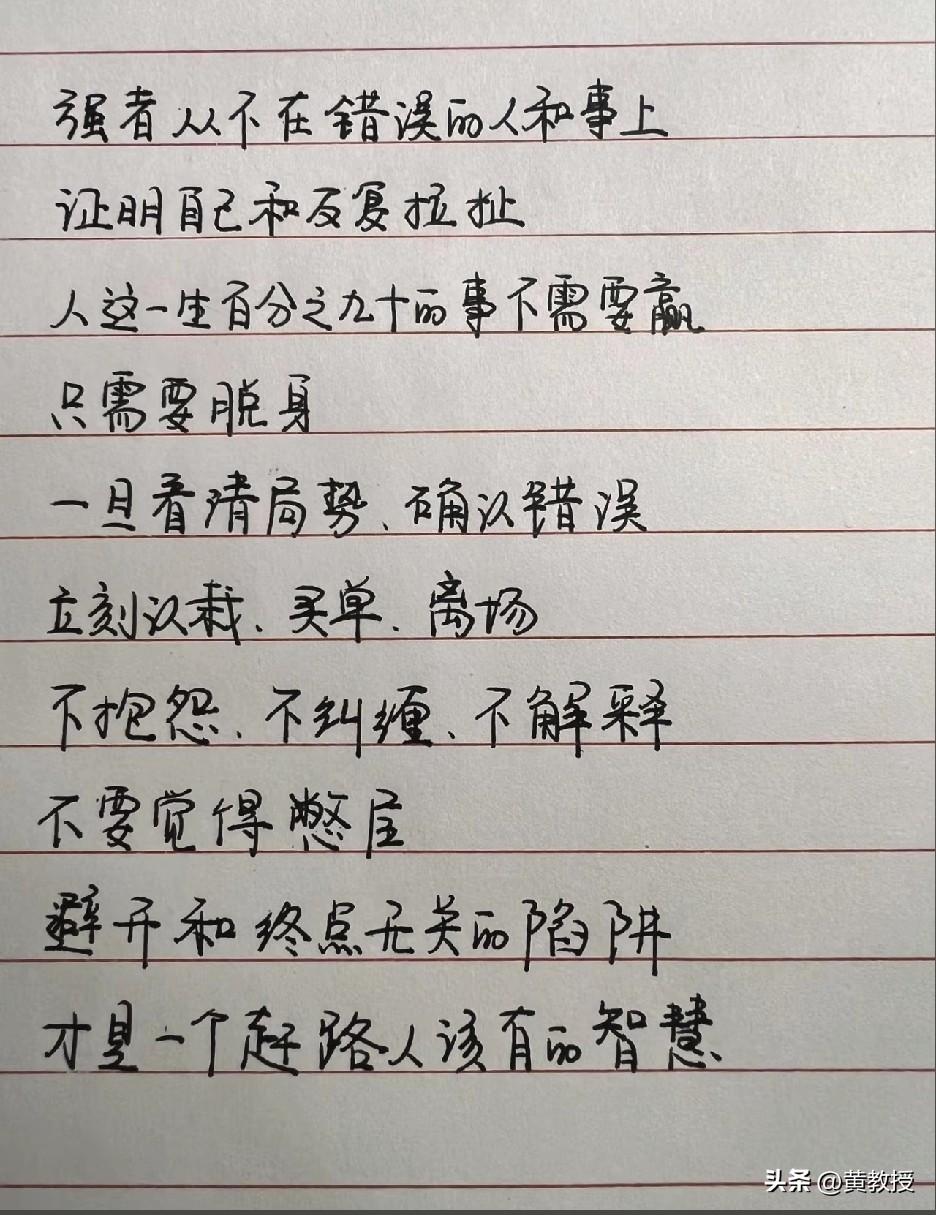 强者从不在错误的人和事上
证明自己和反复拉扯
人这一生百分之九十的事不需要赢
只需要脱身
一旦看清局势、确认错误
立刻认栽、买单、离场
不抱怨、不纠缠、不解释
不要觉得憋屈
避开和终点无关的陷阱
才是一个赶路人该有的智慧
头条 @黄教授